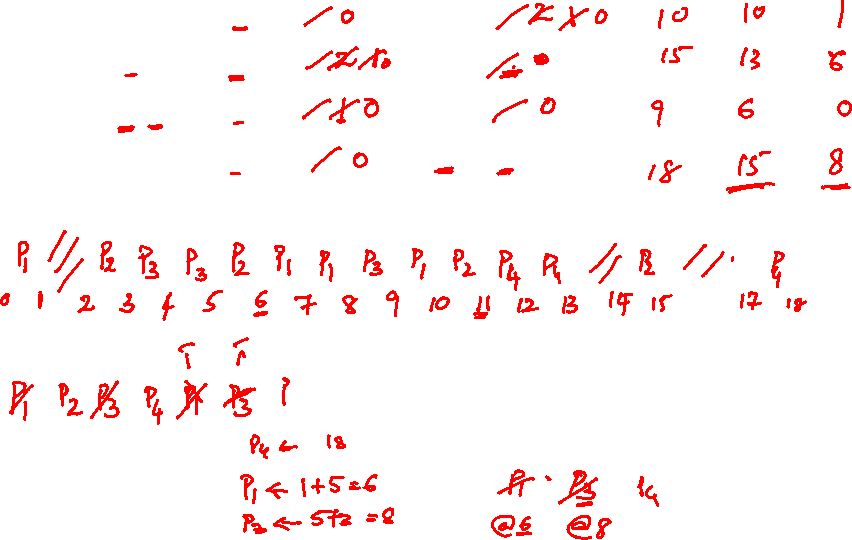 - / 0 / 2 1 0 10 10 1
- - / 2 1 0 / - 15 13 6
- - - / 1 0 / 0 9 6 0
- / 0 - - 18 15 8
P1 // P2 P3 P3 P2 P1 P1 P3 P1 P2 P4 P4 // P2 // P4
0 1 2 3 4 5 6 7 8 9 10 11 12 13 14 15 17 18
P1 P2 P3 P4 P1 P3
P4 ← 18
P1 ← 1+5=6 P1 . P3
P3 ← 5+3 =8 @6 @8